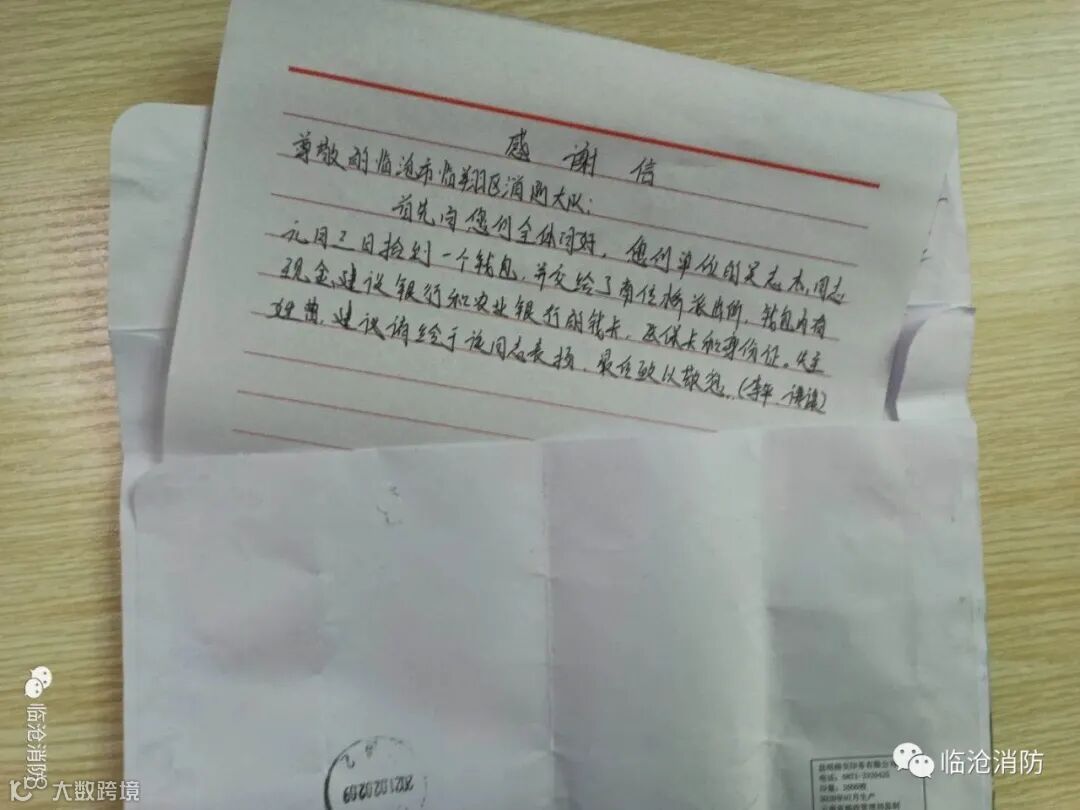 感谢信
尊敬的临沧市临翔区消防大队:
首先向您们全体问好,您们单位的吴志杰同志
元月三日捡到一个钱包,并交给了南信桥派出所,钱包内有
现金,建设银行和农业银行的钱卡,医保卡和身份证。失主
建议请给于该同志表扬,最后致以敬意。
2021.02.02.09
电话:0871-
2020年07月生产
临沧消防
临沧消防
大数跨境